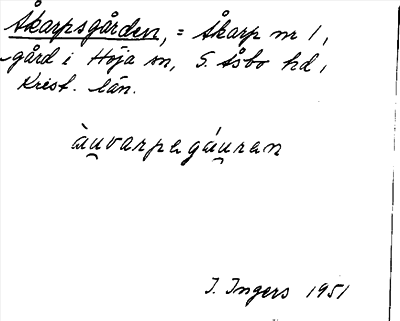 Åkarpsgården, = Åkarp nr 1,
gård i Höja sn, S. Åsbo hd,
Krist. län.
àu̯varpagáu̯ran
I. Ingers 1951